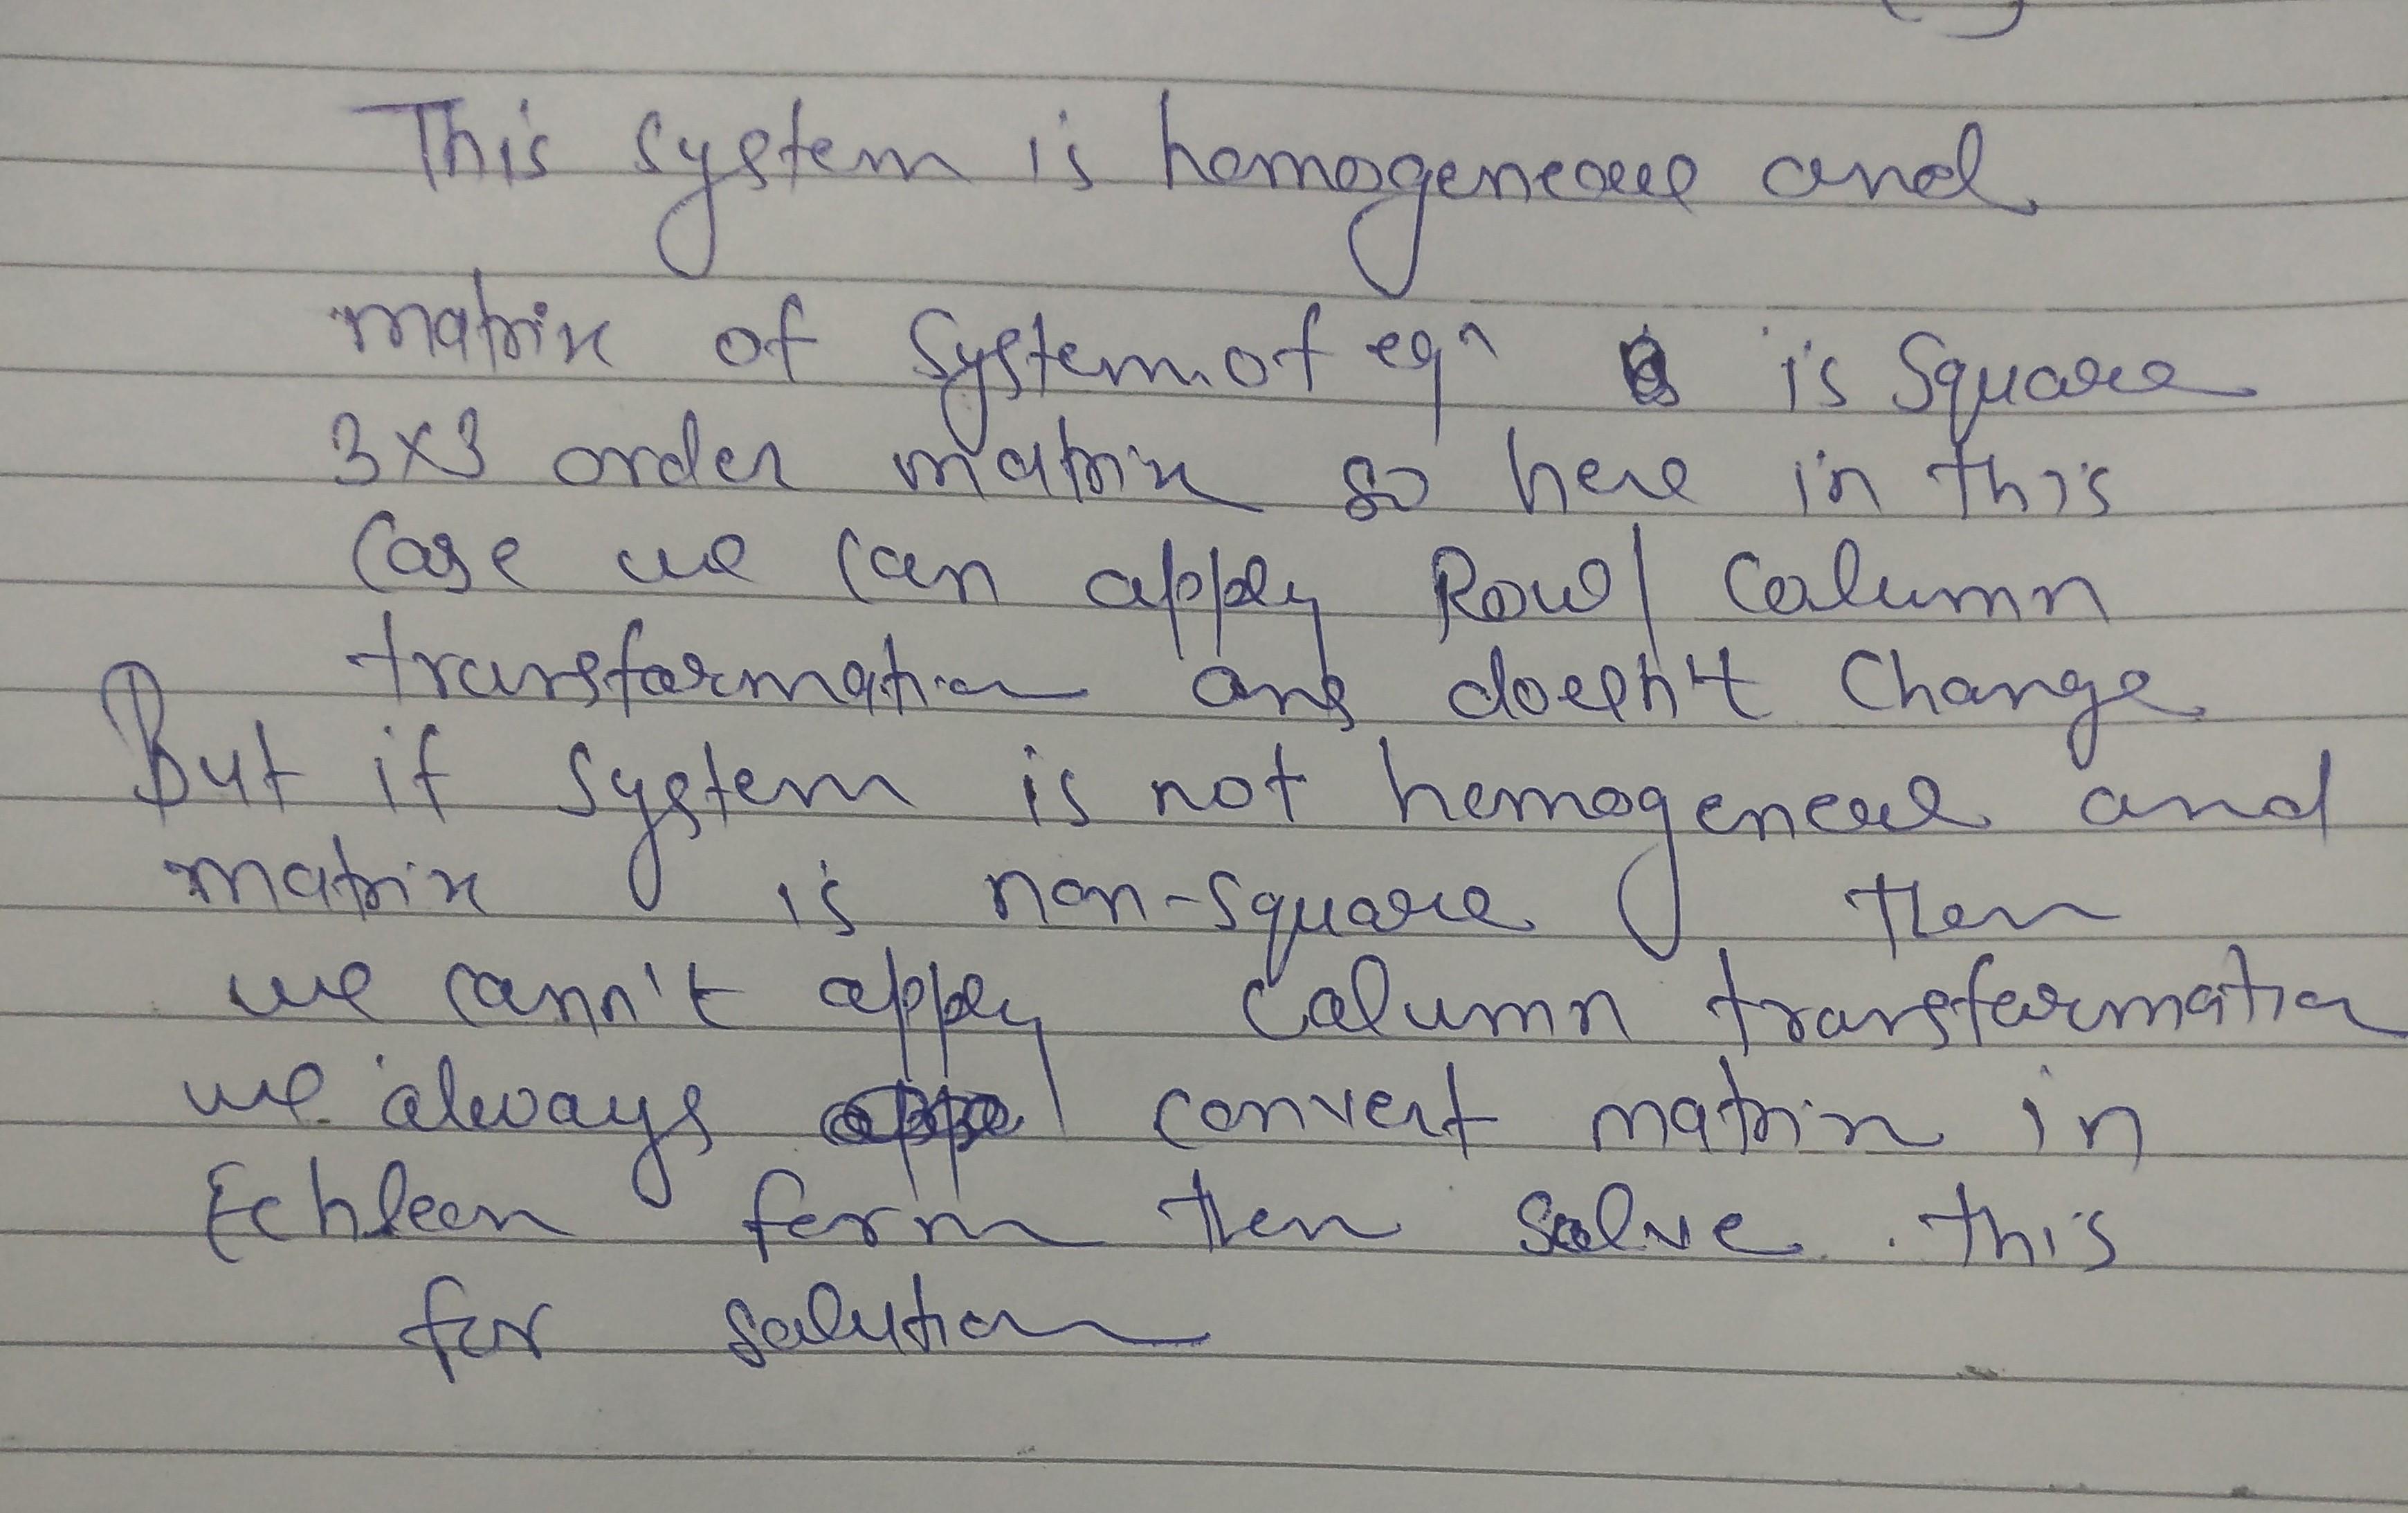 This system is homogeneous and
matrix of system of eqn is square
3x3 order matrix so here in this
case we can apply Row/ Column
transformation ans doesn't change
But if system is not homogeneous and
matrix is non-square then
we cann't apply column transformation
we always convert matrix in
Echleon form then solve this
for solution